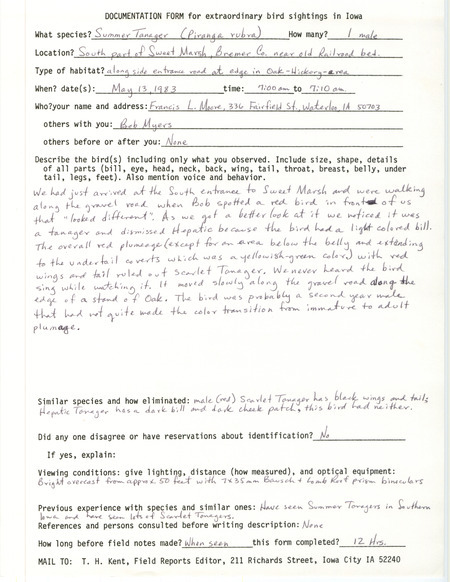 DOCUMENTATION FORM for extraordinary bird sightings in Iowa
What species? Summer Tanager (Piranga rubra) How many? 1 male
Location? South part of Sweet Marsh, Bremer Co. near old Railroad bed.
Type of habitat? along side entrance road at edge in Oak-Hickory area
When? date(s): May 13, 1983 time: 7:00 am to 7:10 am.
Who? your name and address: Francis L. Moore, 336 Fairfield St., Waterloo, IA 50703
others with you: Bob Myers
others before or after you: None
Describe the bird(s) including only what you observed. Include size, shape, details
of all parts (bill, eye, head, neck, back, wing, tail, throat, breast, belly, under
tail, legs, feet). Also mention voice and behavior.
We had just arrived at the South entrance to Sweet Marsh and were walking
along the gravel road when Bob spotted a red bird in front of us
that "looked different". As we got a better look at it we noticed it was
a tanager and dismissed Hepatic because the bird had a light colored bill.
The overall red plumage (except for an area below the belly and extending
to the undertail coverts which was a yellowish-green color) with red
wings and tail ruled out Scarlet Tanager. We never heard the bird
sing while watching it. It moved slowly along the gravel road along the
edge of a stand of Oak. The bird was probably a second year male
that had not quite made the color transition from immature to adult
plumage.
Similar species and how eliminated: male (red) Scarlet Tanager has black wings and tail;
Hepatic Tanager has a dark bill and dark cheek patch, this bird had neither.
Did any one disagree or have reservations about identification? No
If yes, explain:
Viewing conditions: give lighting, distance (how measured), and optical equipment:
Bright overcast from approx 50 feet with 7x35mm Bausch & Lomb Roof prism binoculars
Previous experience with species and similar ones: Have seen Summer Tanagers in Southern
Iowa and have seen lots of Scarlet Tanagers.
References and persons consulted before writing description: None
How long before field notes made? When seen this form completed? 12 Hrs.
MAIL TO: T. H. Kent, Field Reports Editor, 211 Richards Street, Iowa City IA 52240